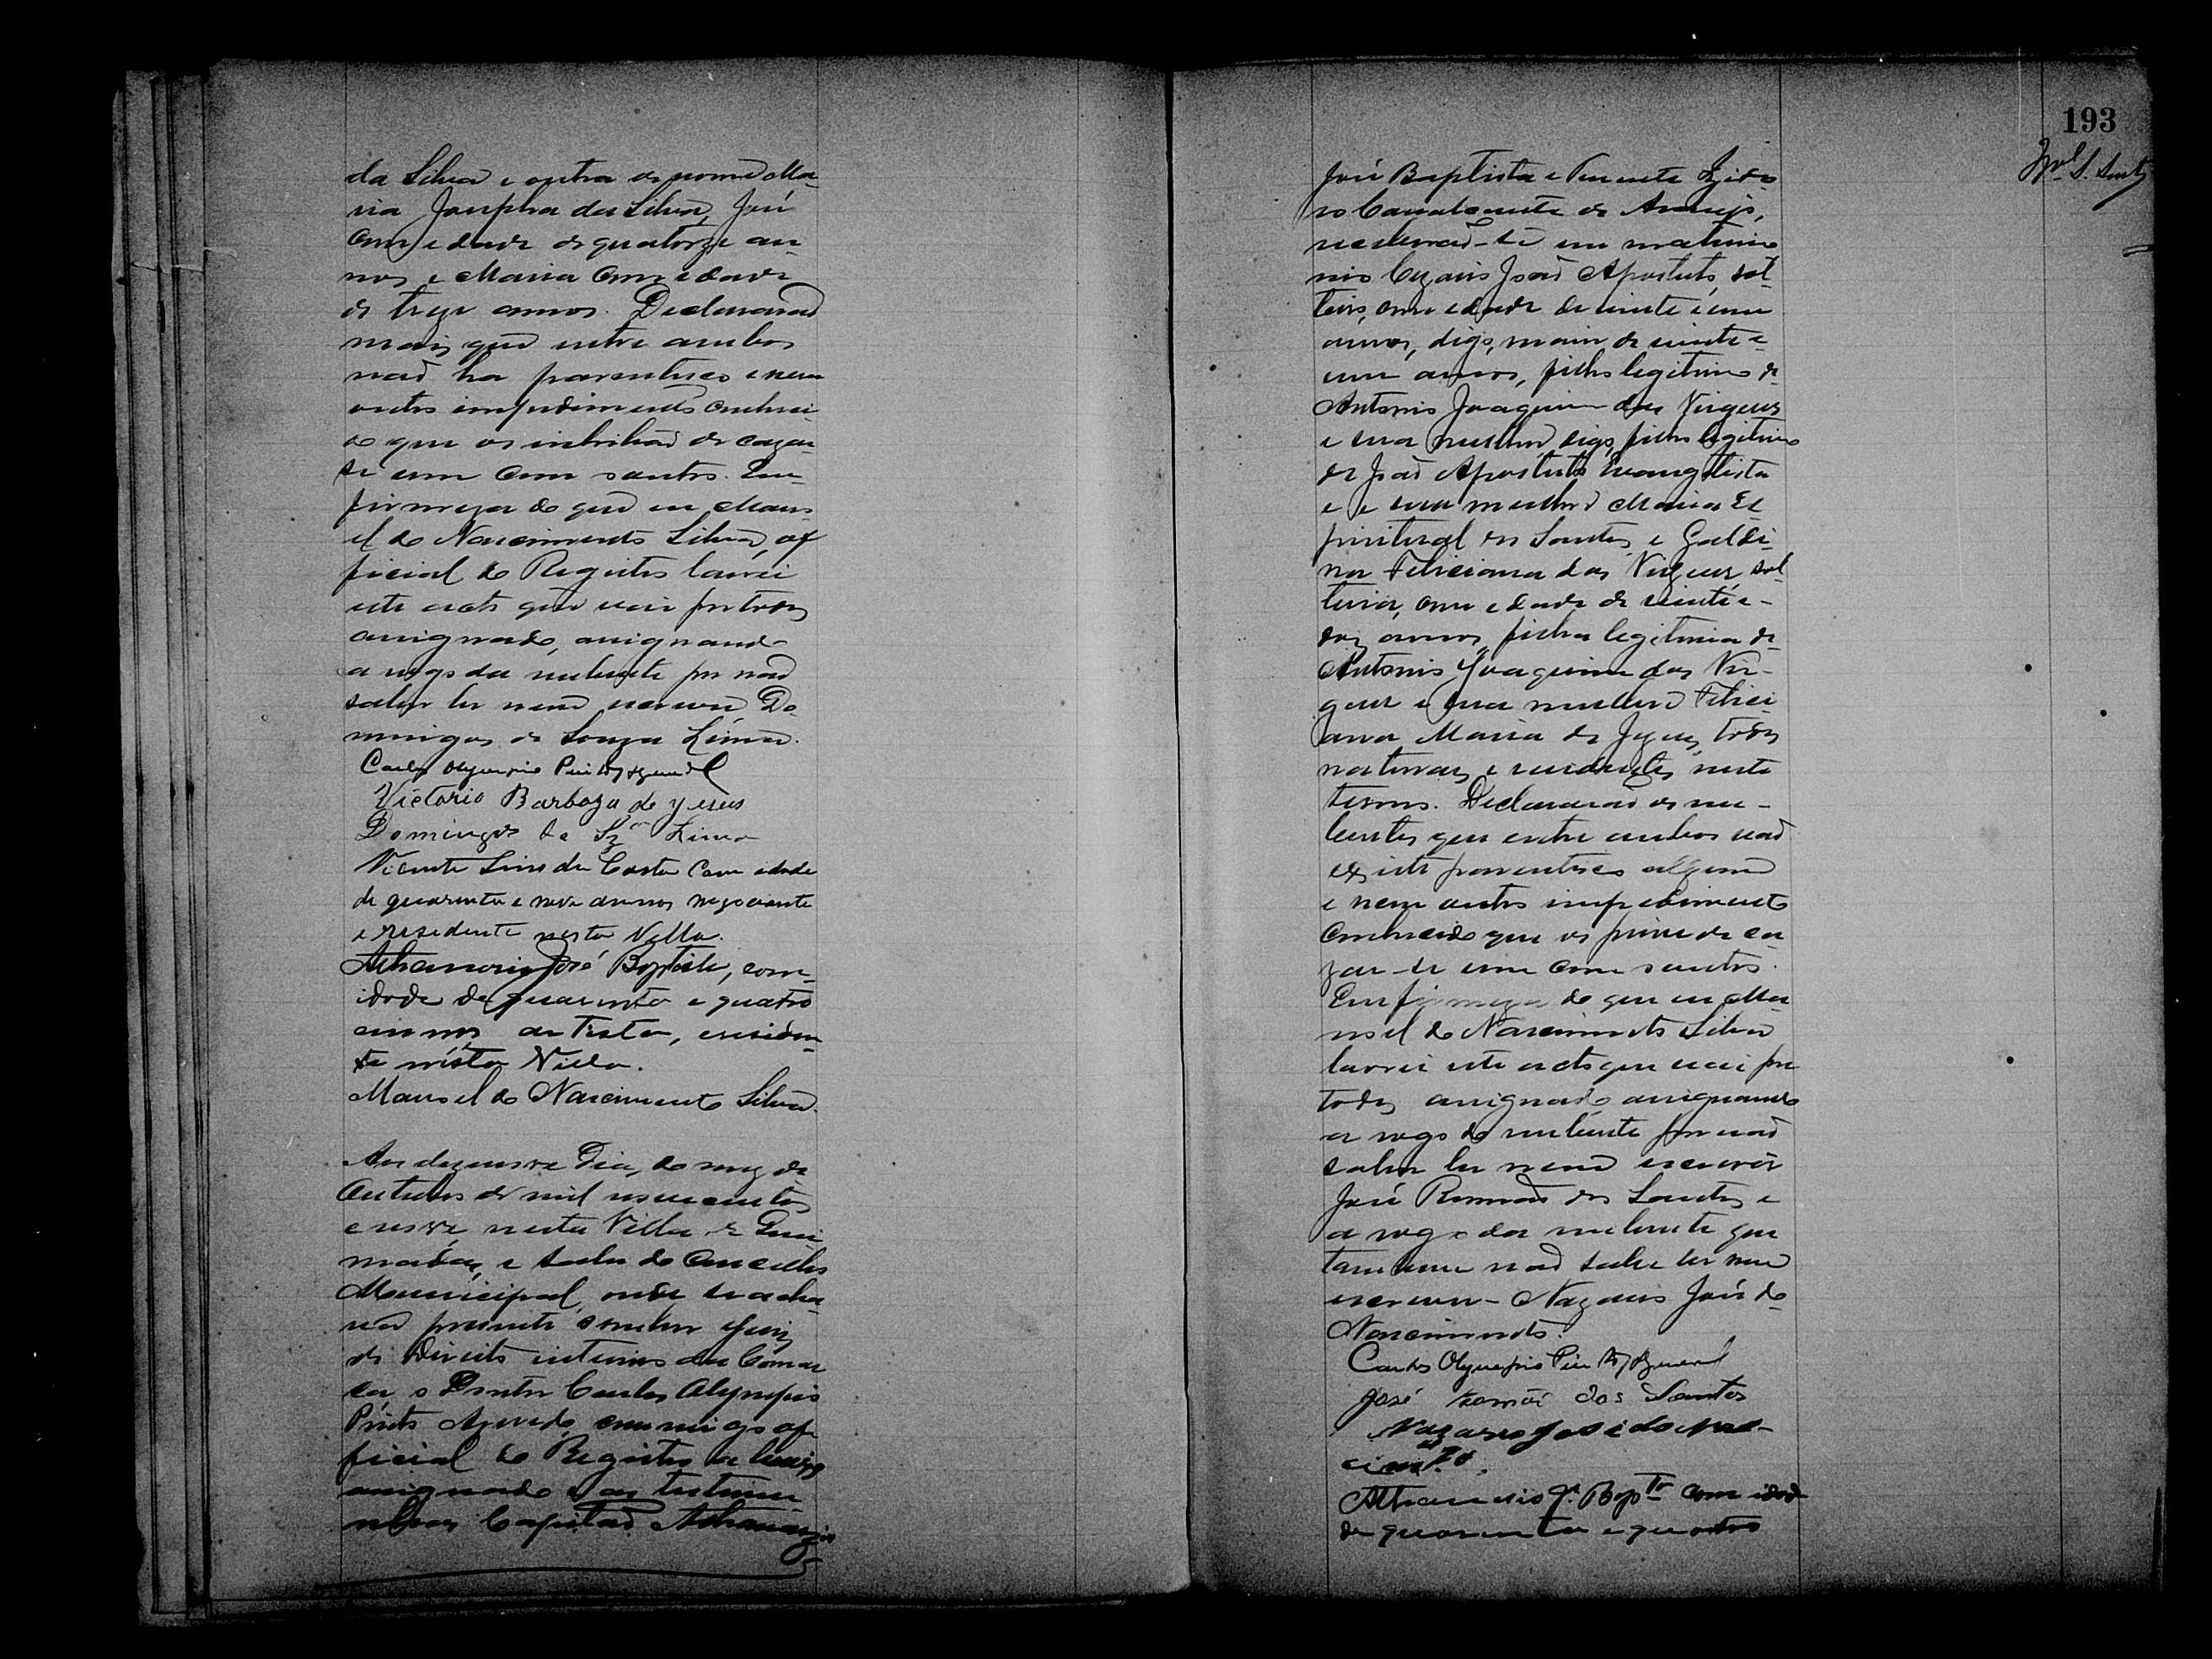 da Silva e outra de nome Ma-
ria Josepha da Silva, José
com edade de quatorze an-
nos e Maria com edade
de treze annos. Declararaõ
mais que entre ambos
naõ ha parentesco e nem
outro impedimento conheci-
do que os inhibaõ de cazar-
se um com o outro. Em
firmeza do que eu Mano-
el do Nascimento Silva, of-
ficial do Registro lavrei
este acto que vai por todos
assignado, assignando
a rogo da nubente por naõ
saber ler nem escrever Do-
mingos de Souza Lima.
Carlos Olympio Pinto Azevedo
Victorio Barboza de Jesus
Domingos de Sza Lima
Vicente Lino da Costa com idade
de quarenta e nove annos negociante
e residente nesta Villa.
Athanazio José Baptista, com
idade de quarenta e quatro
annos, artista, e residen-
te nesta Villa.
Manoel do Nascimento Silva.
Aos dezenove dias do mez de
Outubro de mil novecentos
e nove nesta Villa de Quei-
madas, e salla do Concelho
Municipal, onde se acha-
va presente o senhor Juiz
de Direito interino da Comar-
ca o Doutor Carlos Olympio
Pinto Azevedo, commigo of-
ficial do Registro abaixo
assignado e as testemu-
nhas Capitaõ Athanazio
193
José Baptista e Tenente Izido-
ro Cavalcante de Araujo,
receberaõ-se em matrimo-
nio Cezario Joaõ Apostolo, sol-
teiro, com edade de vinte e um
annos, digo, maior de vinte e
um annos, filho legitimo de
Antonio Joaquim das Virgens
e sua mulher, digo, filho legitimo
de Joaõ Apostolo Evangelista
e sua mulher Maria Es-
piritual dos Santos, e Galdi-
na Feliciana das Virgens, sol-
teira, com edade de vinte e
dois annos, filha legitima de
Antonio Joaquim das Vir-
gens e sua mulher Felici-
ana Maria de Jezus, todos
naturaes e residentes neste
termo. Declararaõ os nu-
bentes que entre ambos naõ
existe parentesco algum
e nem outro impedimento
conhecido que os prive de ca-
zar-se um com o outro.
Em firmeza do que eu Ma-
noel do Nascimento Silva
lavrei este acto que vai por
todos assignado assignando
a rogo do nubente por naõ
saber ler nem escrever
José Romaõ dos Santos e
a rogo da nubente que
tambem naõ sabe ler nem
escrever - Nazario José do
Nascimento.
Carlos Olympio Pinto Azevedo
José Romaõ dos Santos
Nazario José do Nas-
cimto.
Athanazio Je. Bapta com idade
de quarenta e quatro